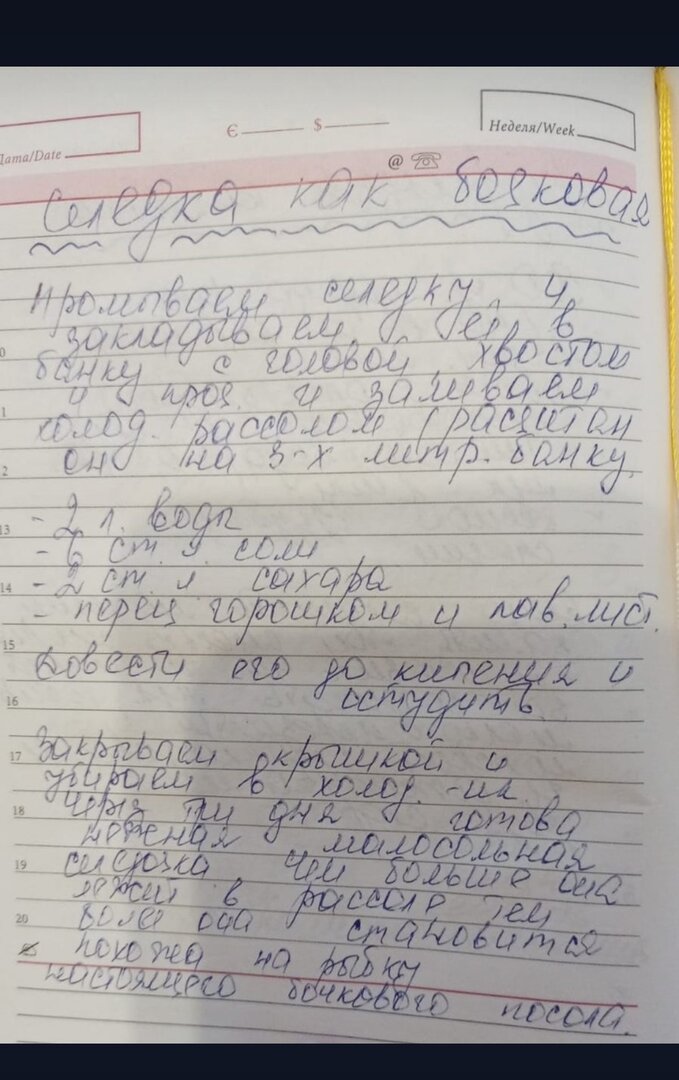 Дата/Date
€ $
Неделя/Week
@ ☏
Селедка как бочковая
Промываем селедку и
закладываем ее в
банку с головой, хвостом
и проч. и заливаем
холод. рассолом (расчитан
он на 3-х литр. банку.
- 2 л. воды
- 6 ст. л. соли
- 2 ст. л. сахара
- перец горошком и лав. лист.
Довести его до кипения и
остудить.
Закрываем крышкой и
убираем в холод.-ик.
Через три дня готова
нежная малосольная
селедочка чем больше она
лежит в рассоле, тем
более она становится
похожа на рыбку
настоящего бочкового посола.
13
14
15
16
17
18
19
20